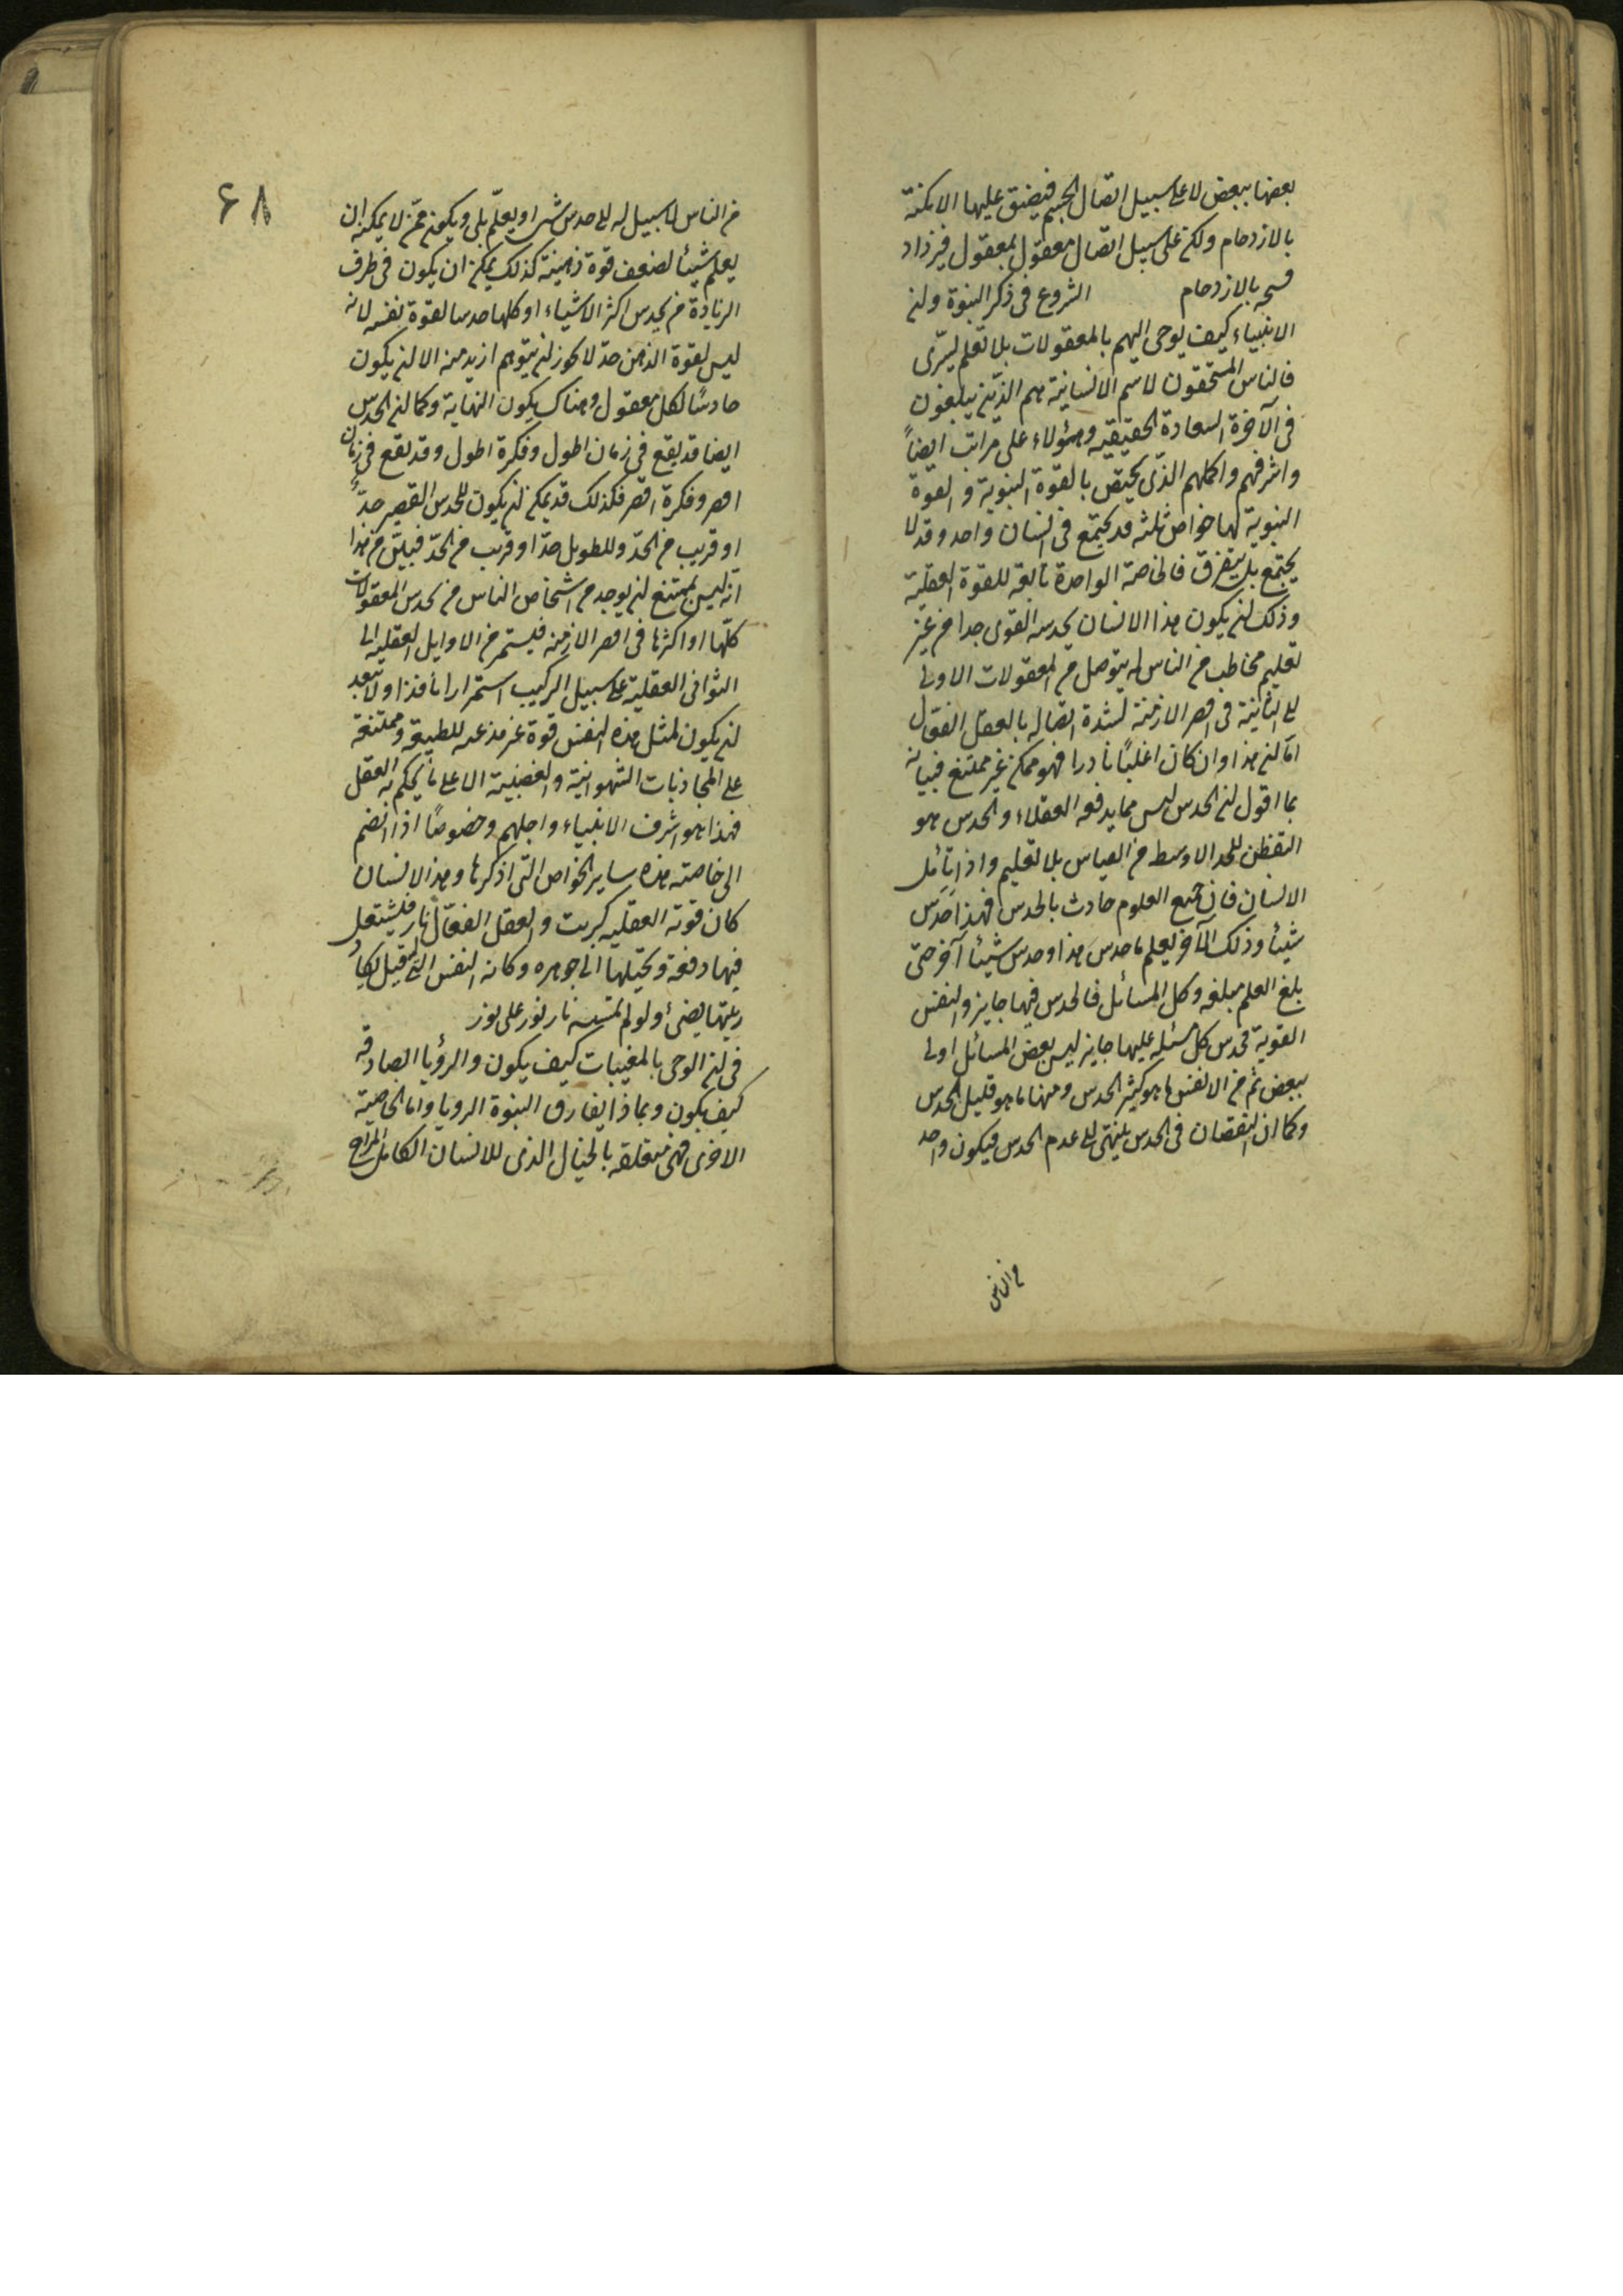 بعضها ببعض لا على سبيل اتصال الجسم فيضيق عليها الامكنة
بالازدحام ولكن على سبيل اتصال معقول بمعقول فيزداد
فسحه بالازدحام الشروع فى ذكر النبوة وان
الانبياء كيف يوحى اليهم بالمعقولات بلا تعلم بشرى
فالناس المستحقون لاسم الانسانية هم الذين يبلغون
فى الآخرة السعادة الحقيقيه وهؤلاء على مراتب ايضاً
واشرفهم واكملهم الذى يختص بالقوة النبوية والقوة
النبوية لها خواص ثلثه قد يجتمع فى انسان واحد وقد لا
يجتمع بل يتفرق فالخاصة الواحدة تابعه للقوة العقلية
وذلك ان يكون هذا الانسان بحدسه القوى جدا من غير
تعليم مخاطب من الناس له يتوصل من المعقولات الاولى
الى الثانية فى اقصر الازمنة لشدة اتصاله بالعقل الفعال
اما ان هذا وان كان اغلبًا نادرا فهو ممكن غير ممتنع فبيانه
بما اقول ان الحدس ليس مما يدفعه العقلاء والحدس هو
التفطن للحد الاوسط من القياس بلا تعليم واذا تأمل
الانسان فان جميع العلوم حادث بالحدس فهذا حدس
شيئا وذلك الآخر تعلم ما حدس هذا وحدس شيئا آخر حتى
بلغ العلم مبلغه وكل المسائل فالحدس فيها جايز والنفس
القوية فحدس كل مسئله عليها جايز ليس بعض المسائل اولى
ببعض ثم من الانفس ما هو كثير الحدس ومنها ما هو قليل الحدس
وكما ان النقصان فى الحدس ينتهى الى عدم الحدس فيكون واحد
من الناس
٦٨
من الناس لا سبيل له الى حدس شىء او يعلم بلى ويكون ممن لا يمكنه ان
يعلم شيئا لضعف قوة ذهنية كذلك يمكن ان يكون فى طرف
الزيادة من يحدس اكثر الاشياء او كلها حدسا لقوة نفسه لانه
ليس لقوة الذهن حد لا يجوز ان يتوهم ازيد منه الا ان يكون
حادسًا لكل معقول وهناك يكون النهاية وكما ان الحدس
ايضا قد يقع فى زمان اطول وفكرة اطول وقد يقع فى زمان
اقصر وفكرة اقصر فكذلك قد يمكن ان يكون للحدس القصير حدّ
او قريب من الحدّ وللطويل حدّ او قريب من الحدّ فبيّن من هذا
انّه ليس بممتنع ان يوجد من اشخاص الناس من يحدس المعقولات
كلّها او اكثرها فى اقصر الازمنه فيستمر من الاوايل العقليه الى
الثوانى العقلية على سبيل التركيب استمرارا نافذا ولا يبعد
ان يكون لمثل هذه النفس قوة غير مذعنه للطبيعه وممتنعه
على المجاذبات الشهوانية والغضبية الا على ما يحكم به العقل
فهذا هو اشرف الانبياء واجلهم وخصوصًا اذا انضم
الى خاصته هذه ساير الخواص التى اذكرها وهذا الانسان
كان قوته العقليه كبريت والعقل الفعّال نار فيشتعل
فيها دفعة ويحيلها الى جوهره وكانه النفس التى قيل يكاد
زيتها يضئ ولو لم تمسسه نار نور على نور
فى ان الوحى بالمغيبات كيف يكون والرؤيا الصادقه
كيف يكون وبماذا يفارق النبوة الرويا واما الخاصية
الاخرى فهى متعلقه بالخيال الذى للانسان الكامل المزاج